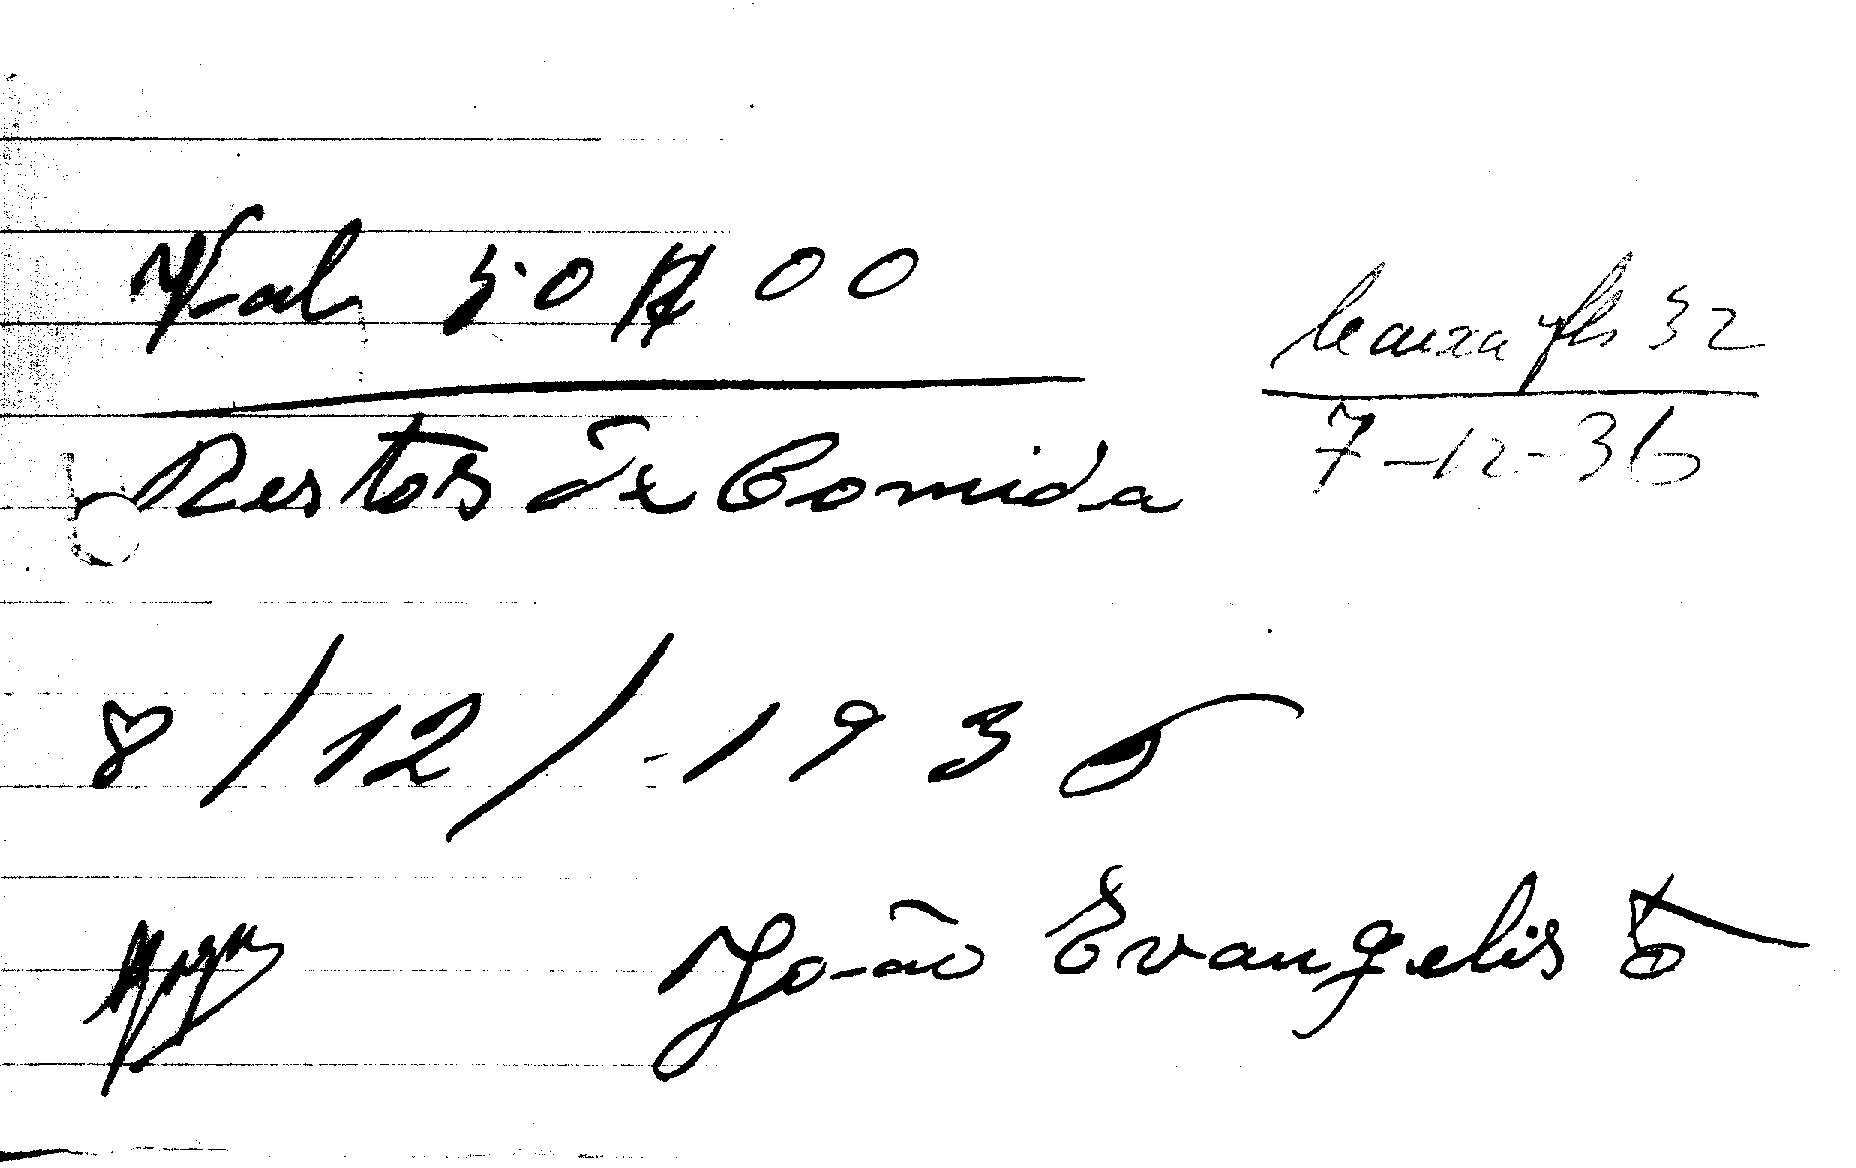 Val 50$000
Caixa fls 32
7-12-36
Restos de Comida
8/12/-1936
João Evangelisto